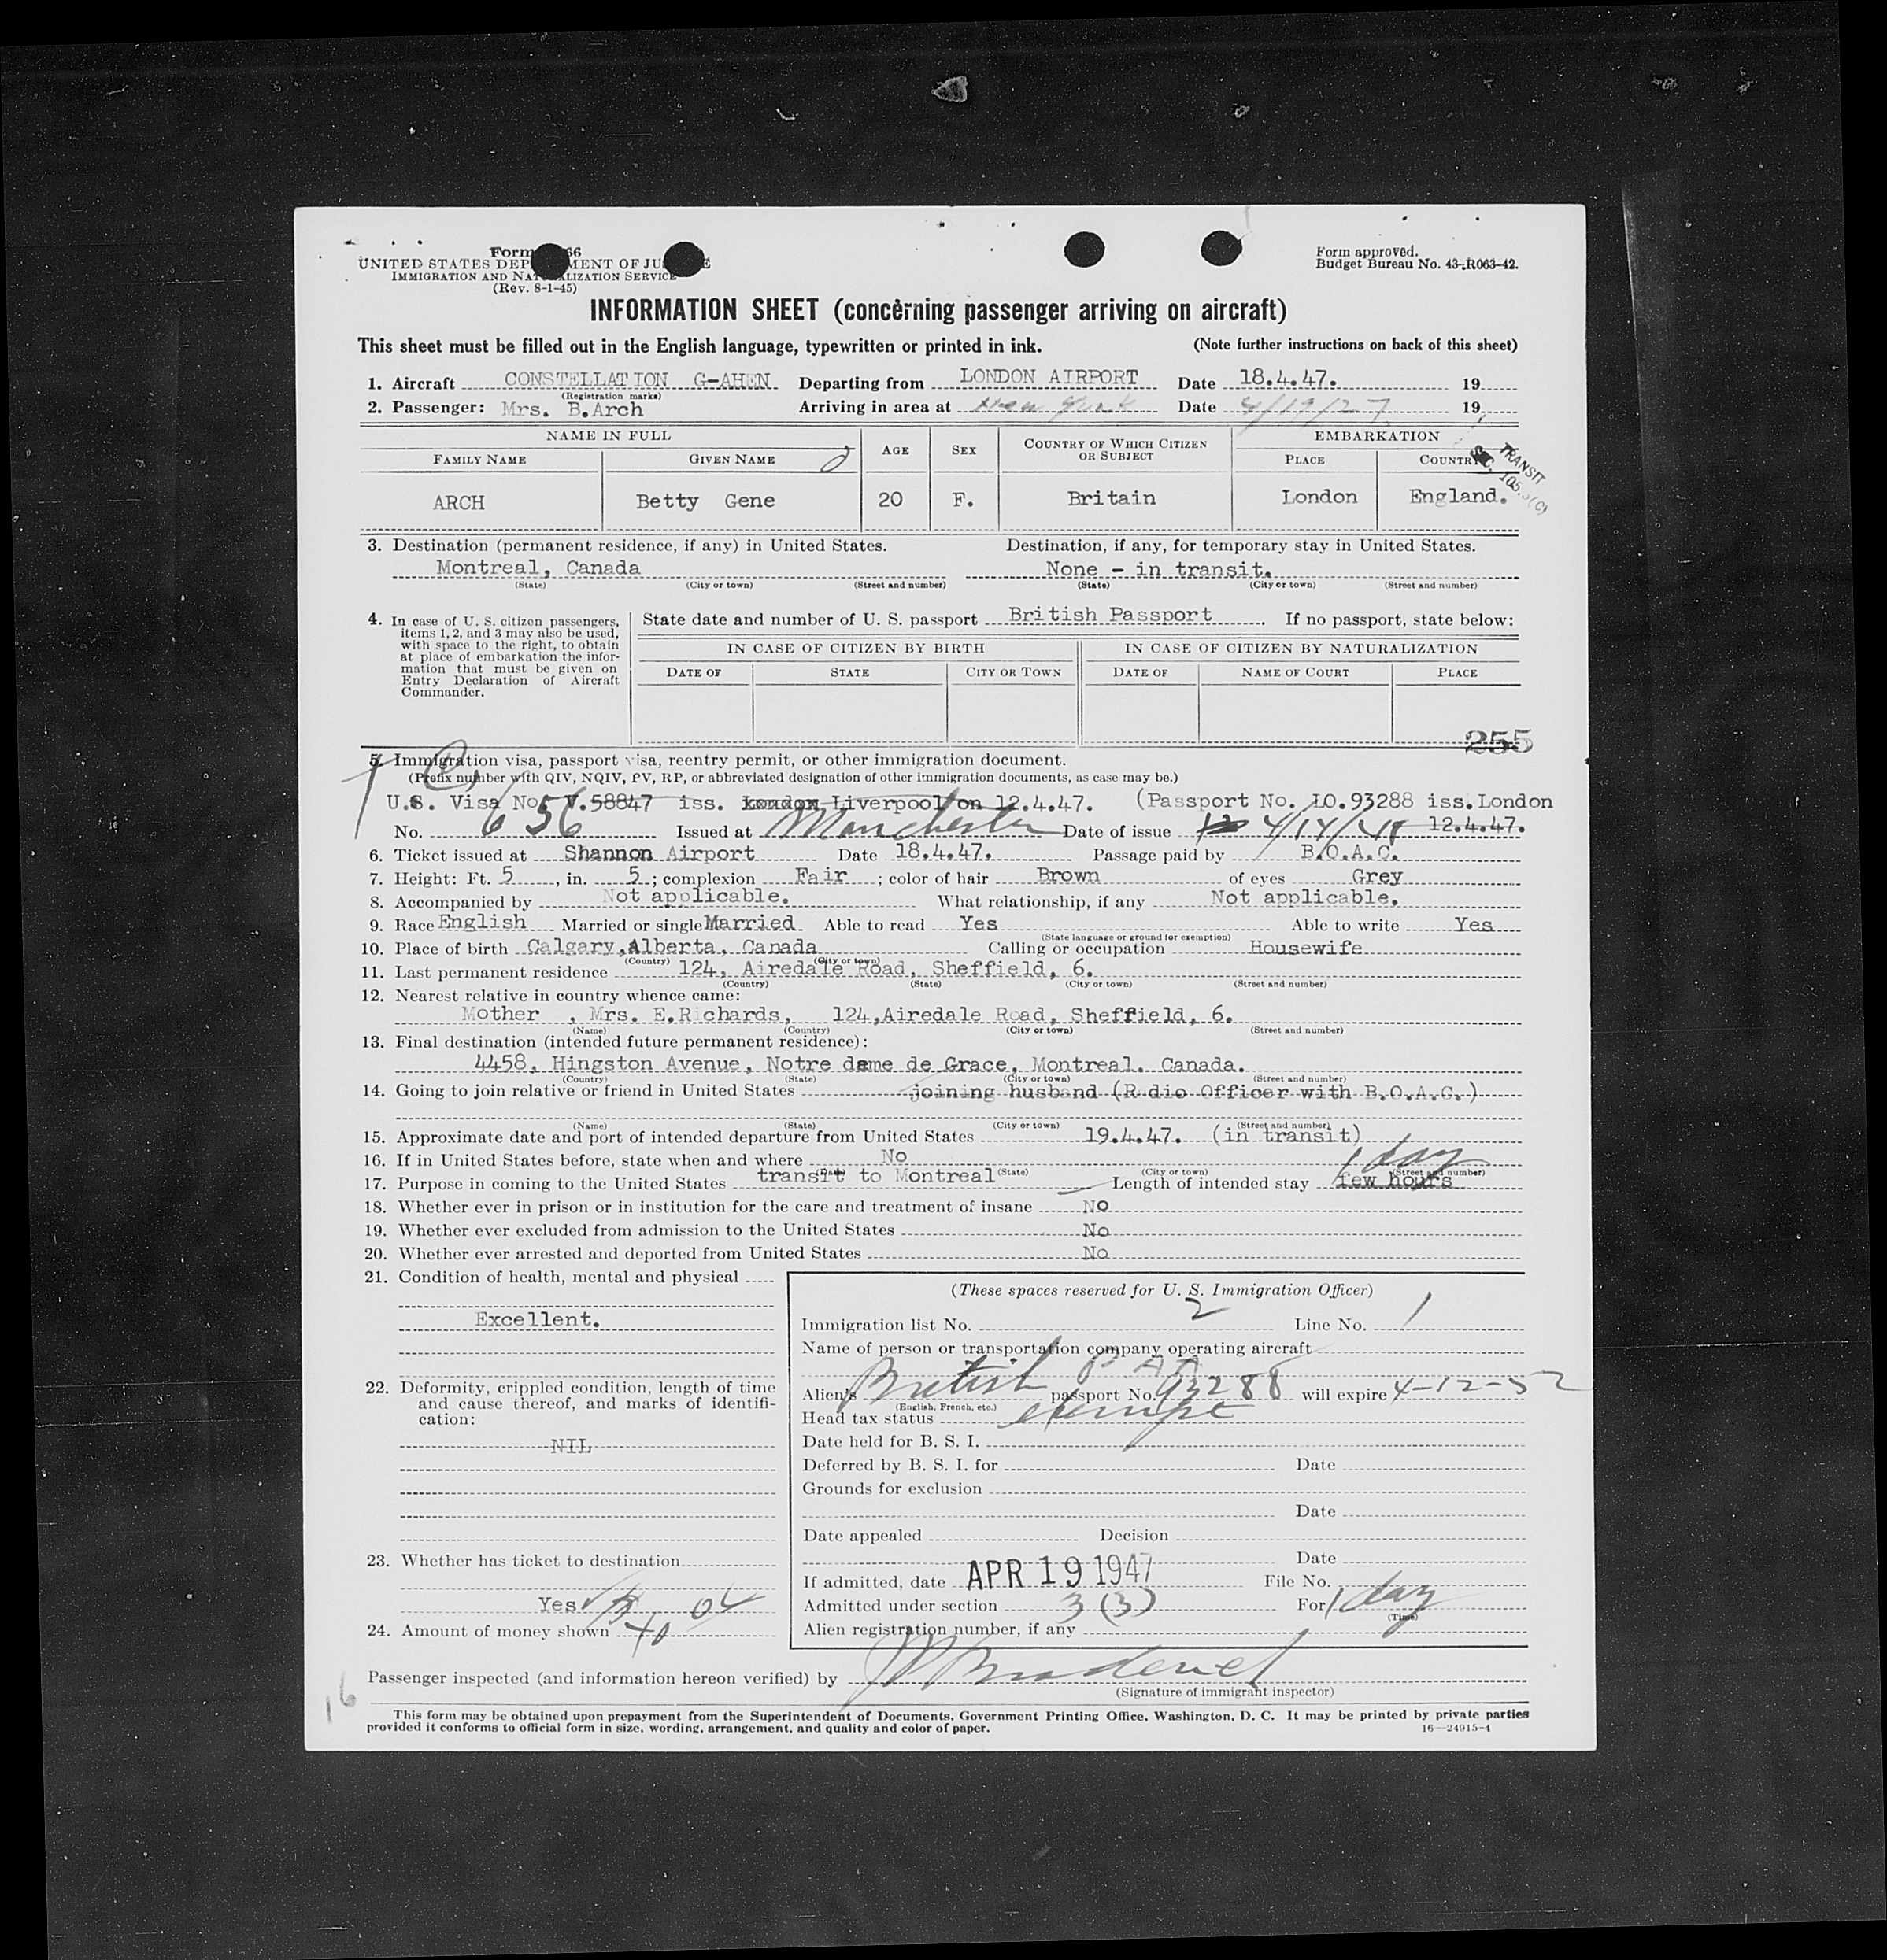 Form 66
UNITED STATES DEP MENT OF JU E
IMMIGRATION AND NAT LIZATION SERVICE
(Rev. 8-1-45)
Form approved.
Budget Bureau No. 43-R063-42.
INFORMATION SHEET (concerning passenger arriving on aircraft)
This sheet must be filled out in the English language, typewritten or printed in ink. (Note further instructions on back of this sheet)
1. Aircraft CONSTELLATION G-AHEN Departing from LONDON AIRPORT Date 18.4.47. 19
(Registration marks)
2. Passenger: Mrs. B.Arch Arriving in area at New York Date 4/19/27 19
NAME IN FULL AGE SEX COUNTRY OF WHICH CITIZEN OR SUBJECT EMBARKATION
FAMILY NAME GIVEN NAME PLACE COUNTRY
TRANSIT
SEC. 105.3(c)
ARCH Betty Gene 20 F. Britain London England.
3. Destination (permanent residence, if any) in United States. Destination, if any, for temporary stay in United States.
Montreal, Canada None - in transit.
(State) (City or town) (Street and number) (State) (City or town) (Street and number)
4. In case of U. S. citizen passengers, items 1, 2, and 3 may also be used, with space to the right, to obtain at place of embarkation the information that must be given on Entry Declaration of Aircraft Commander.
State date and number of U. S. passport British Passport. If no passport, state below:
IN CASE OF CITIZEN BY BIRTH IN CASE OF CITIZEN BY NATURALIZATION
DATE OF STATE CITY OR TOWN DATE OF NAME OF COURT PLACE
255
5. Immigration visa, passport visa, reentry permit, or other immigration document.
(Prefix number with QIV, NQIV, PV, RP, or abbreviated designation of other immigration documents, as case may be.)
U.S. Visa No. V.58847 iss. London Liverpool on 12.4.47. (Passport No. LO.93288 iss.London
No. 656 Issued at Manchester Date of issue 4/14/48 12.4.47.
6. Ticket issued at Shannon Airport Date 18.4.47. Passage paid by B.O.A.C.
7. Height: Ft. 5, in. 5; complexion Fair; color of hair Brown of eyes Grey
8. Accompanied by Not applicable. What relationship, if any Not applicable.
9. Race English Married or single Married Able to read Yes Able to write Yes
(State language or ground for exemption)
10. Place of birth Calgary,Alberta, Canada Calling or occupation Housewife
(Country) (City or town)
11. Last permanent residence 124, Airedale Road, Sheffield, 6.
(Country) (State) (City or town) (Street and number)
12. Nearest relative in country whence came:
Mother , Mrs. E.Richards, 124,Airedale Road, Sheffield, 6.
(Name) (Country) (City or town) (Street and number)
13. Final destination (intended future permanent residence):
4458, Hingston Avenue, Notre dame de Grace, Montreal. Canada.
(Country) (State) (City or town) (Street and number)
14. Going to join relative or friend in United States joining husband (Radio Officer with B.O.A.C.)
(Name) (State) (City or town) (Street and number)
15. Approximate date and port of intended departure from United States 19.4.47. (in transit)
16. If in United States before, state when and where No 1 day
(Date) (State) (City or town) (Street and number)
17. Purpose in coming to the United States transit to Montreal Length of intended stay few hours
18. Whether ever in prison or in institution for the care and treatment of insane NO
19. Whether ever excluded from admission to the United States No
20. Whether ever arrested and deported from United States No
21. Condition of health, mental and physical
Excellent.
22. Deformity, crippled condition, length of time and cause thereof, and marks of identification:
NIL
23. Whether has ticket to destination
Yes
24. Amount of money shown 40
(These spaces reserved for U. S. Immigration Officer)
Immigration list No. 2 Line No. 1
Name of person or transportation company operating aircraft
Alien's British passport No. 93288 will expire 4-12-52
(English, French, etc.)
Head tax status exempt
Date held for B. S. I.
Deferred by B. S. I. for Date
Grounds for exclusion
Date
Date appealed Decision
Date
If admitted, date APR 19 1947 File No.
Admitted under section 3(3) For 1 day
(Time)
Alien registration number, if any
Passenger inspected (and information hereon verified) by
(Signature of immigrant inspector)
16
This form may be obtained upon prepayment from the Superintendent of Documents, Government Printing Office, Washington, D. C. It may be printed by private parties
provided it conforms to official form in size, wording, arrangement, and quality and color of paper. 16—24915-4